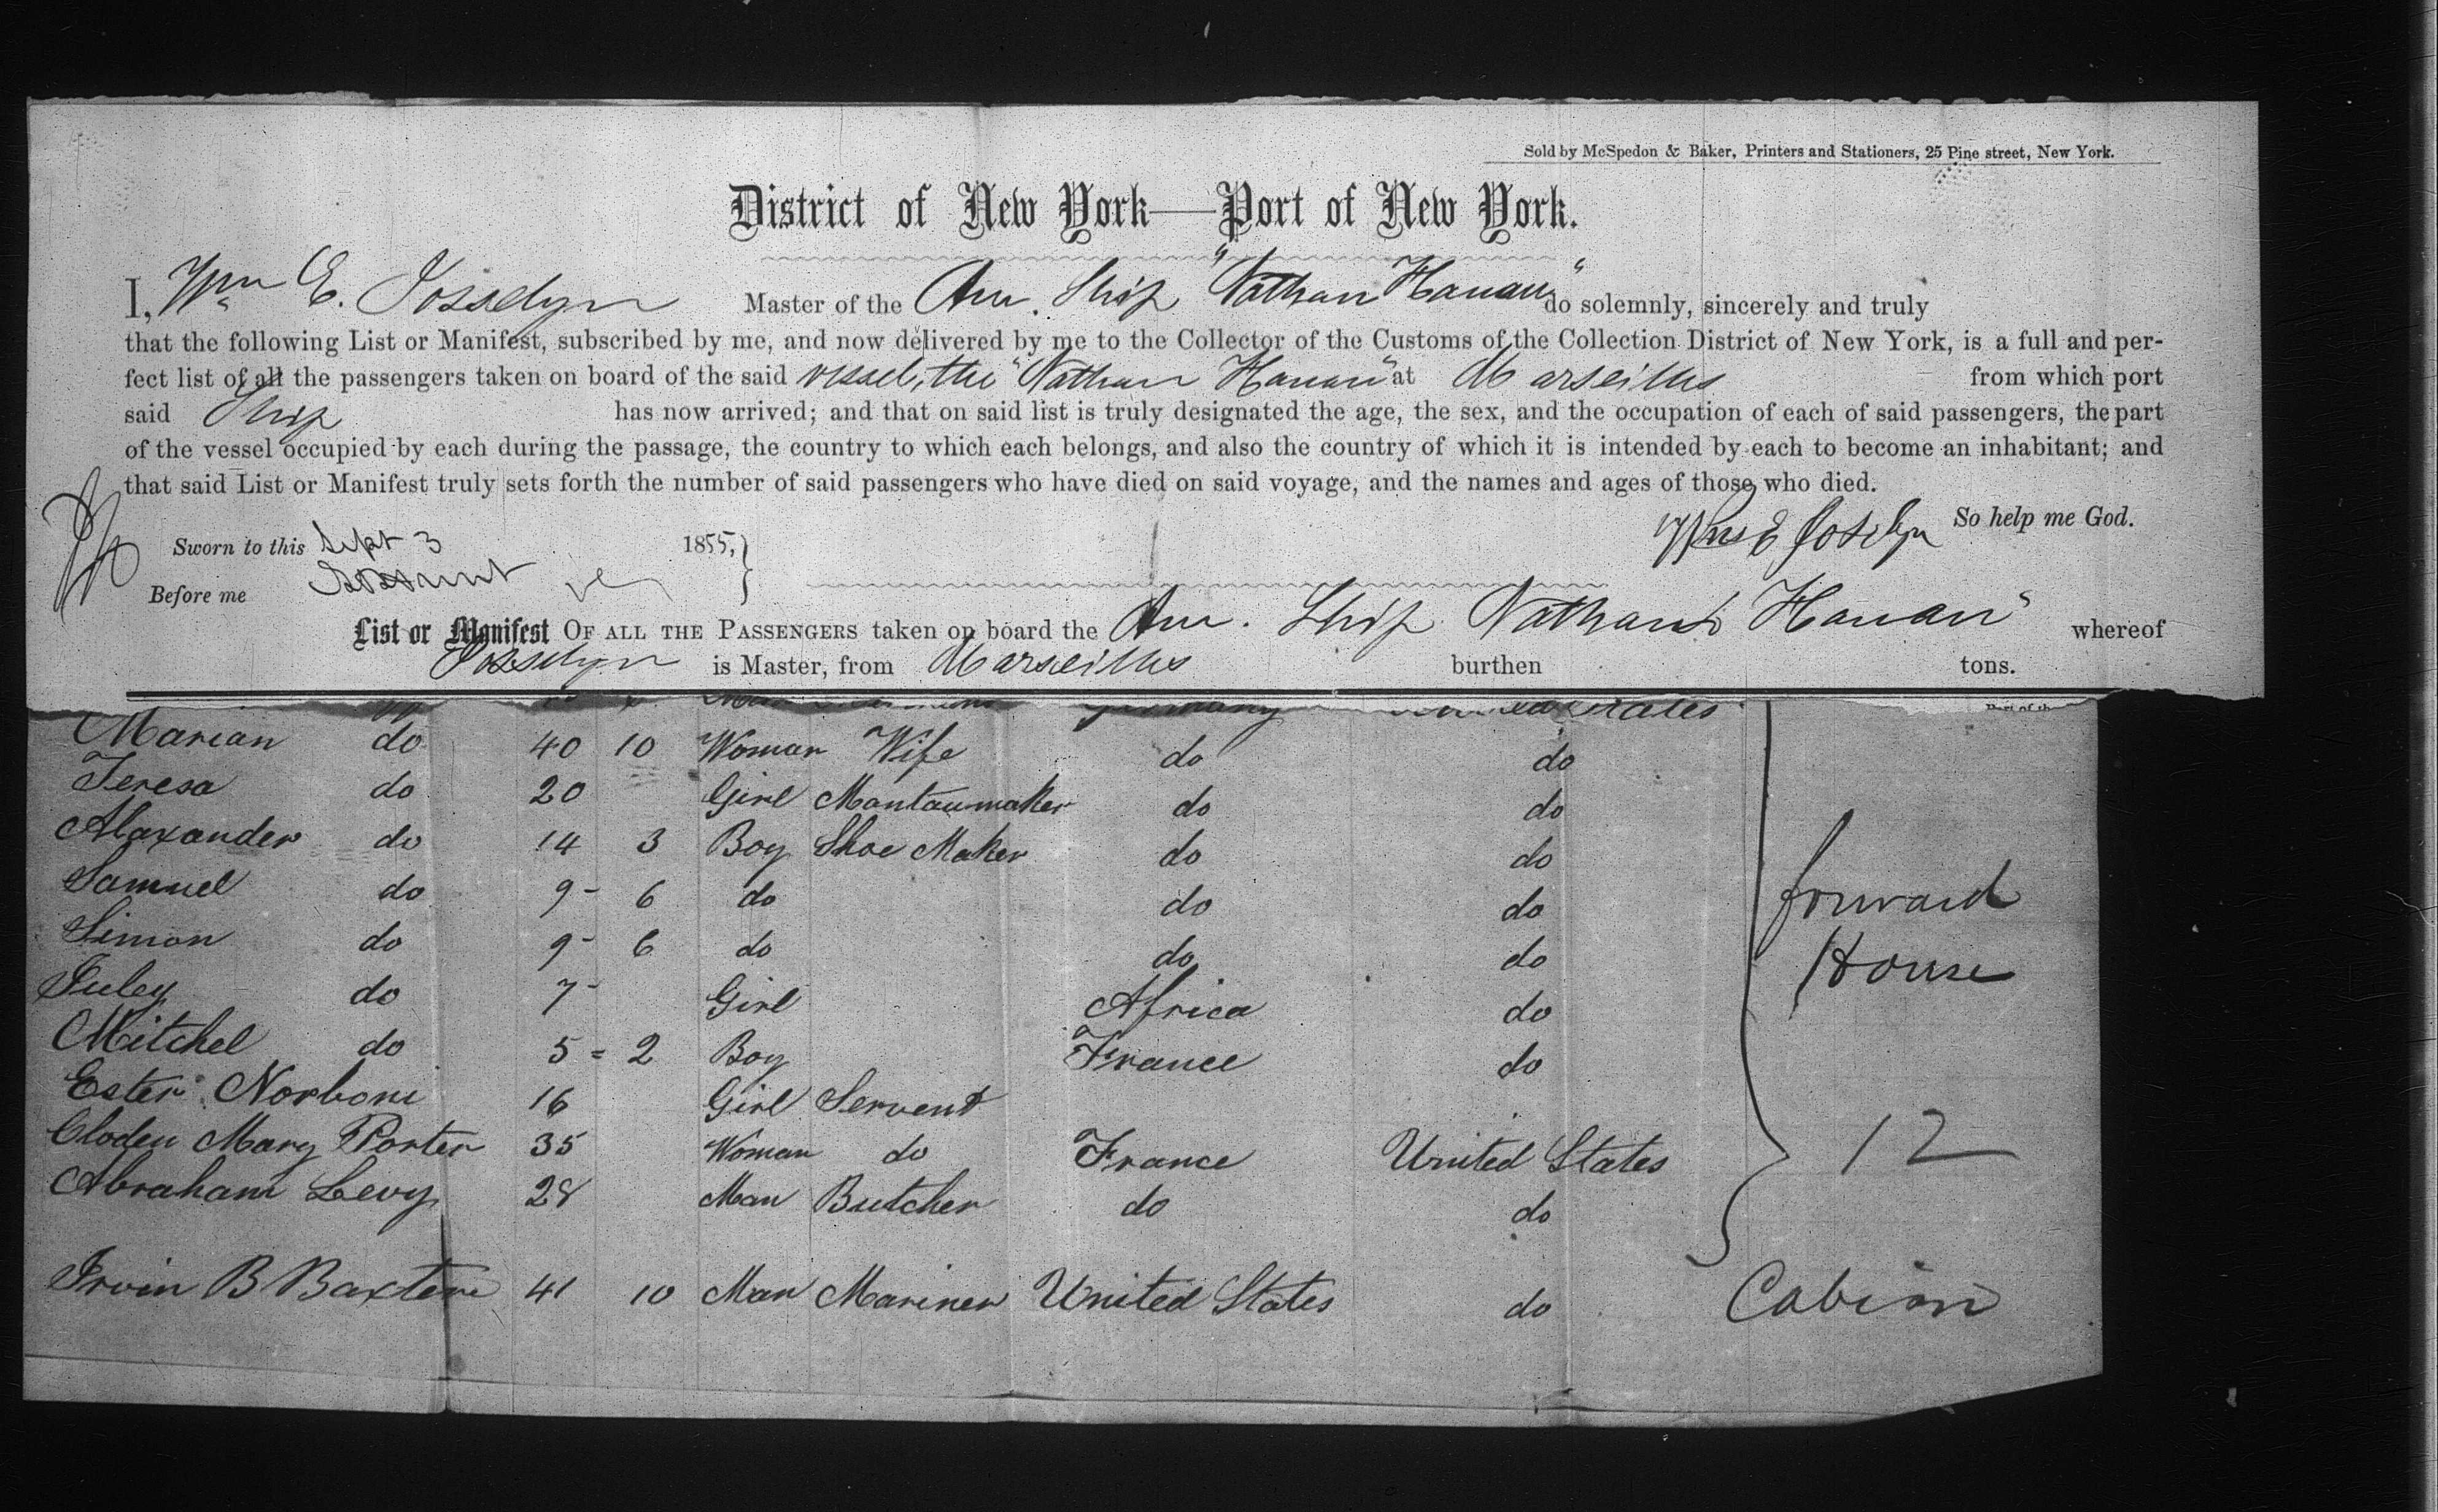 Sold by McSpedon & Baker, Printers and Stationers, 25 Pine street, New York.
District of New York—Port of New York.
I, Wm E. Josselyn Master of the Am. Ship "Nathan Hanau" do solemnly, sincerely and truly
that the following List or Manifest, subscribed by me, and now delivered by me to the Collector of the Customs of the Collection District of New York, is a full and per-
fect list of all the passengers taken on board of the said vessel, the "Nathan Hanau" at Marseilles from which port
said Ship has now arrived; and that on said list is truly designated the age, the sex, and the occupation of each of said passengers, the part
of the vessel occupied by each during the passage, the country to which each belongs, and also the country of which it is intended by each to become an inhabitant; and
that said List or Manifest truly sets forth the number of said passengers who have died on said voyage, and the names and ages of those who died.
Wm E Josselyn So help me God.
Sworn to this Sept 3 1855,
Before me
List or Manifest OF ALL THE PASSENGERS taken on board the Am. Ship Nathan Hanau" whereof
Josselyn is Master, from Marseilles burthen tons.
Germany United States
Marian do 40 10 Woman Wife do do
Teresa do 20 Girl Mantaumaker do do
Alaxander do 14 3 Boy Shoe Maker do do
Samuel do 9- 6 do do do
Simon do 9- 6 do do do
Juley do 7- Girl Africa do
Mitchel do 5 = 2 Boy France do
Ester Norboni 16 Girl Servent
Cloden Mary Porter 35 Woman do France United States
Abraham Levy 28 Man Butcher do do
forward
House
12
Irvin B Baxter 41 10 Man Mariner United States do Cabin